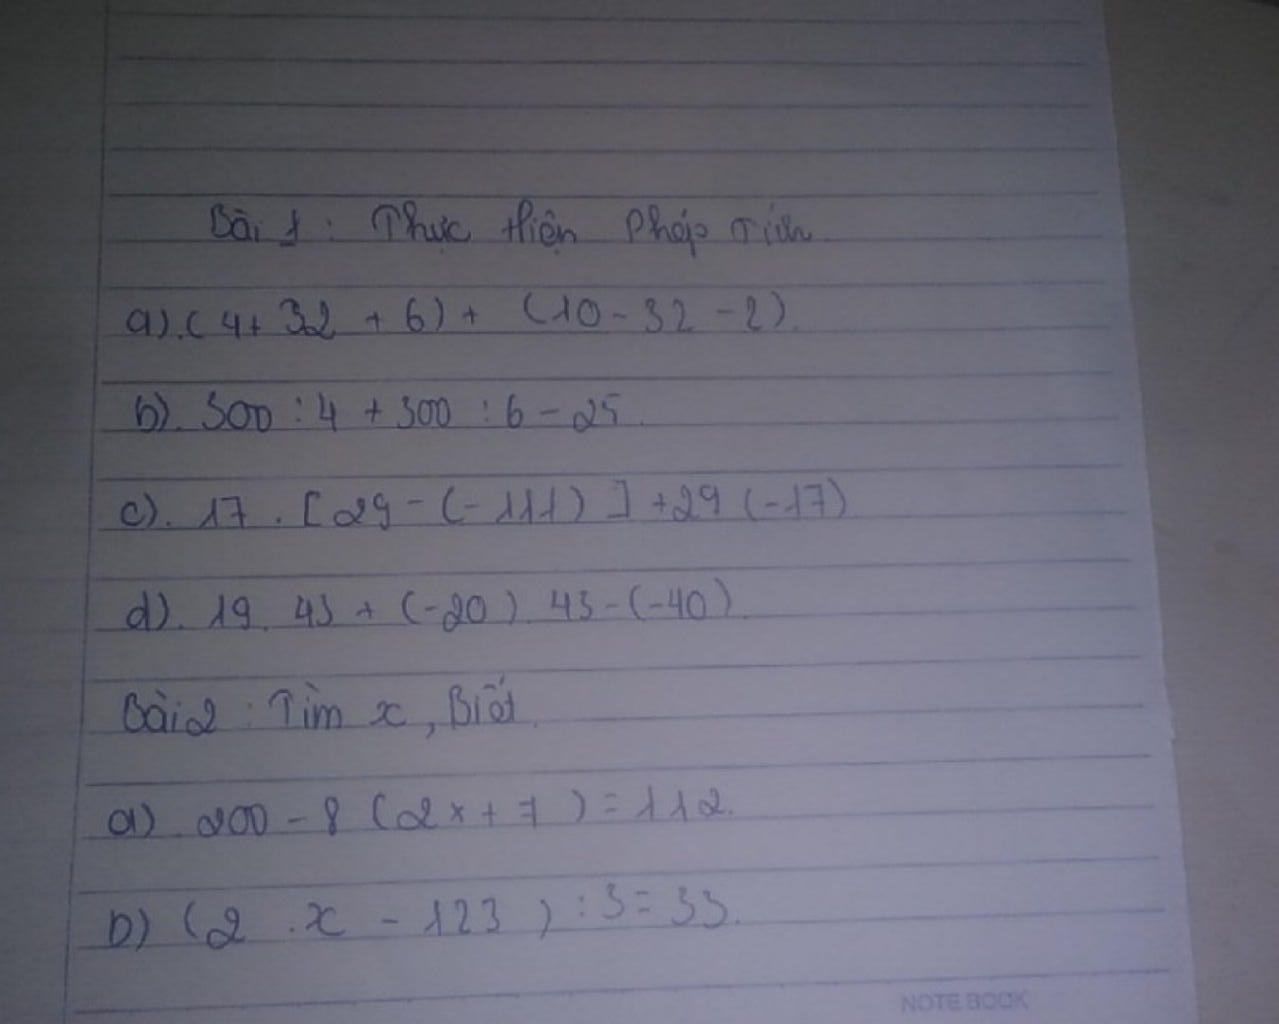 Bài 1: Thực hiện phép tính
a). (4+ 32 + 6) + (10 - 32 - 2).
b). 300 : 4 + 300 : 6 - 25.
c). 17 . [29 - (-111)] + 29 (-17)
d). 19. 43 + (-20). 43 - (-40).
Bài 2: Tìm x, Biết.
a). 200 - 8 (2x + 7) = 112.
b) (2 . x - 123) : 3 = 33.
NOTE BOOK